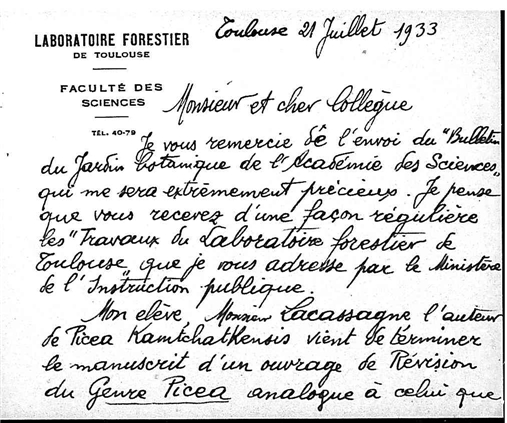 LABORATOIRE FORESTIER
DE TOULOUSE
FACULTÉ DES
SCIENCES
TÉL. 40-79
Toulouse 21 Juillet 1933
Monsieur et cher Collègue
Je vous remercie de l'envoi du "Bulletin
du Jardin botanique de l'Académie des Sciences"
qui me sera extrêmement précieux. Je pense
que vous recevez d'une façon régulière
les "Travaux du Laboratoire forestier de
Toulouse" que je vous adresse par le Ministère
de l'Instruction publique.
Mon élève, Monsieur Lacassagne l'auteur
de Picea Kamtchatkensis vient de terminer
le manuscrit d'un ouvrage de Révision
du Genre Picea analogue à celui que